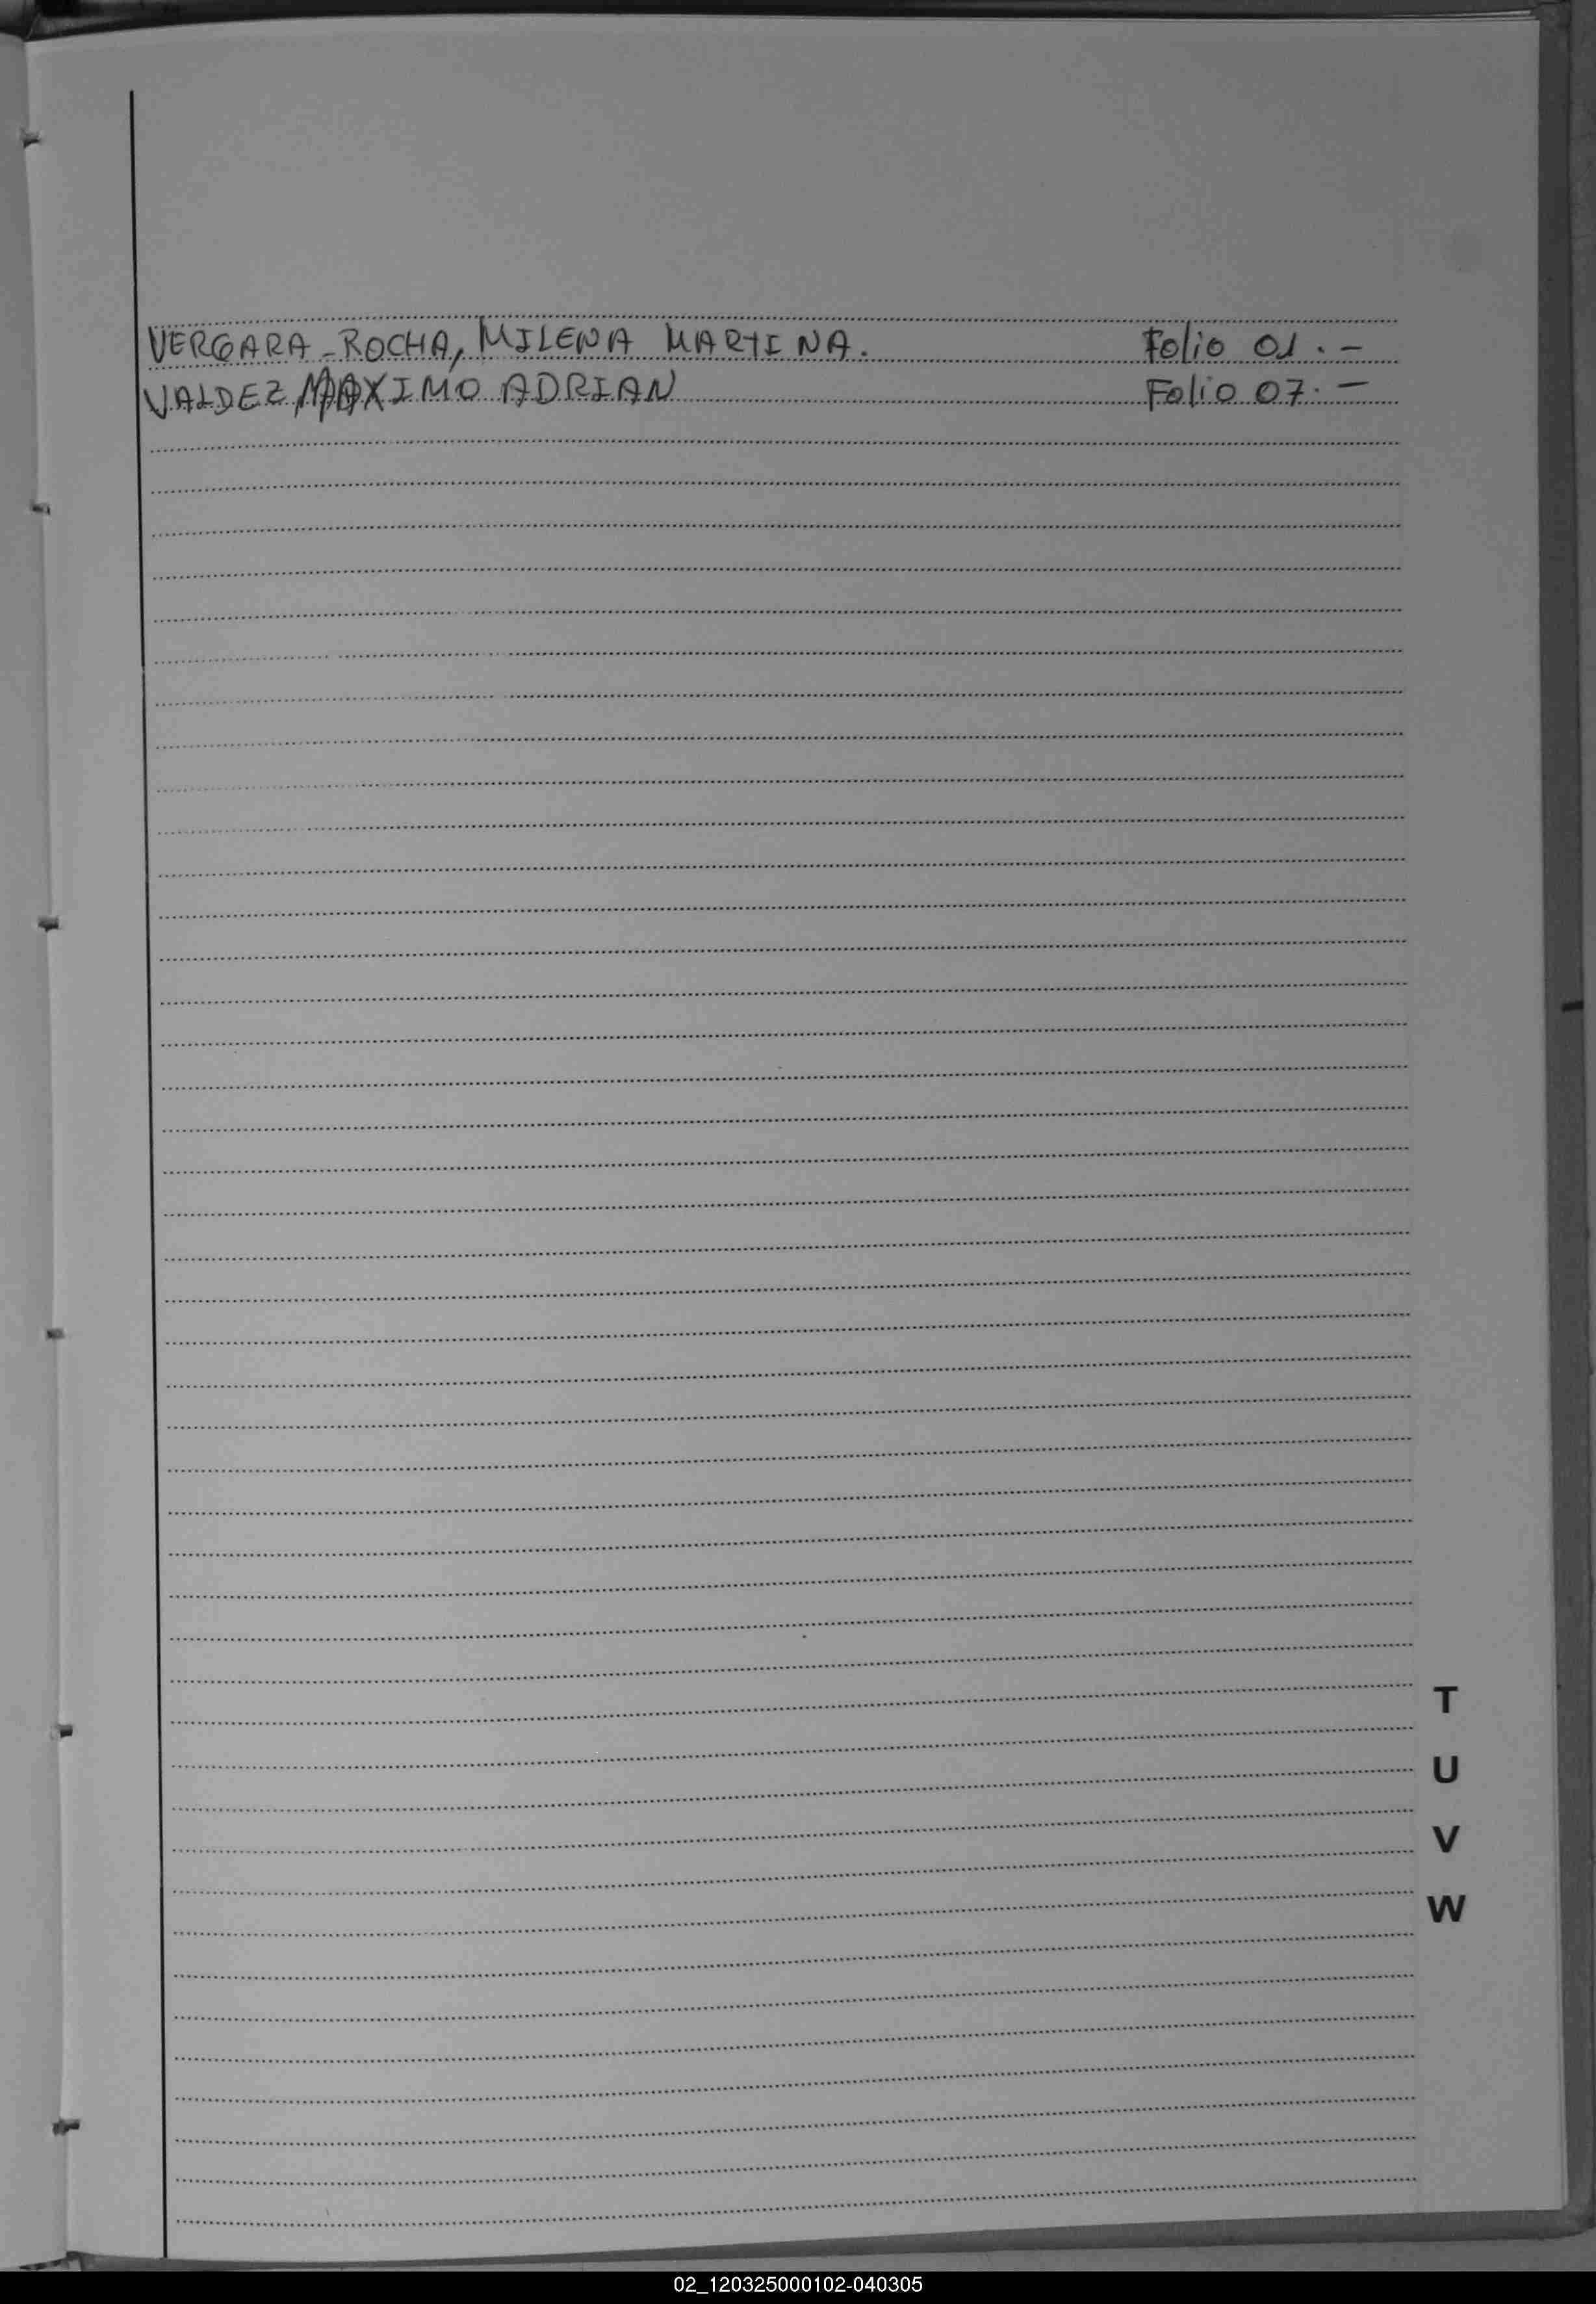 VERGARA - ROCHA, MILENA MARTINA. Folio 01. -
VALDEZ MAXIMO ADRIAN Folio 07. -
T
U
V
W
02_120325000102-040305